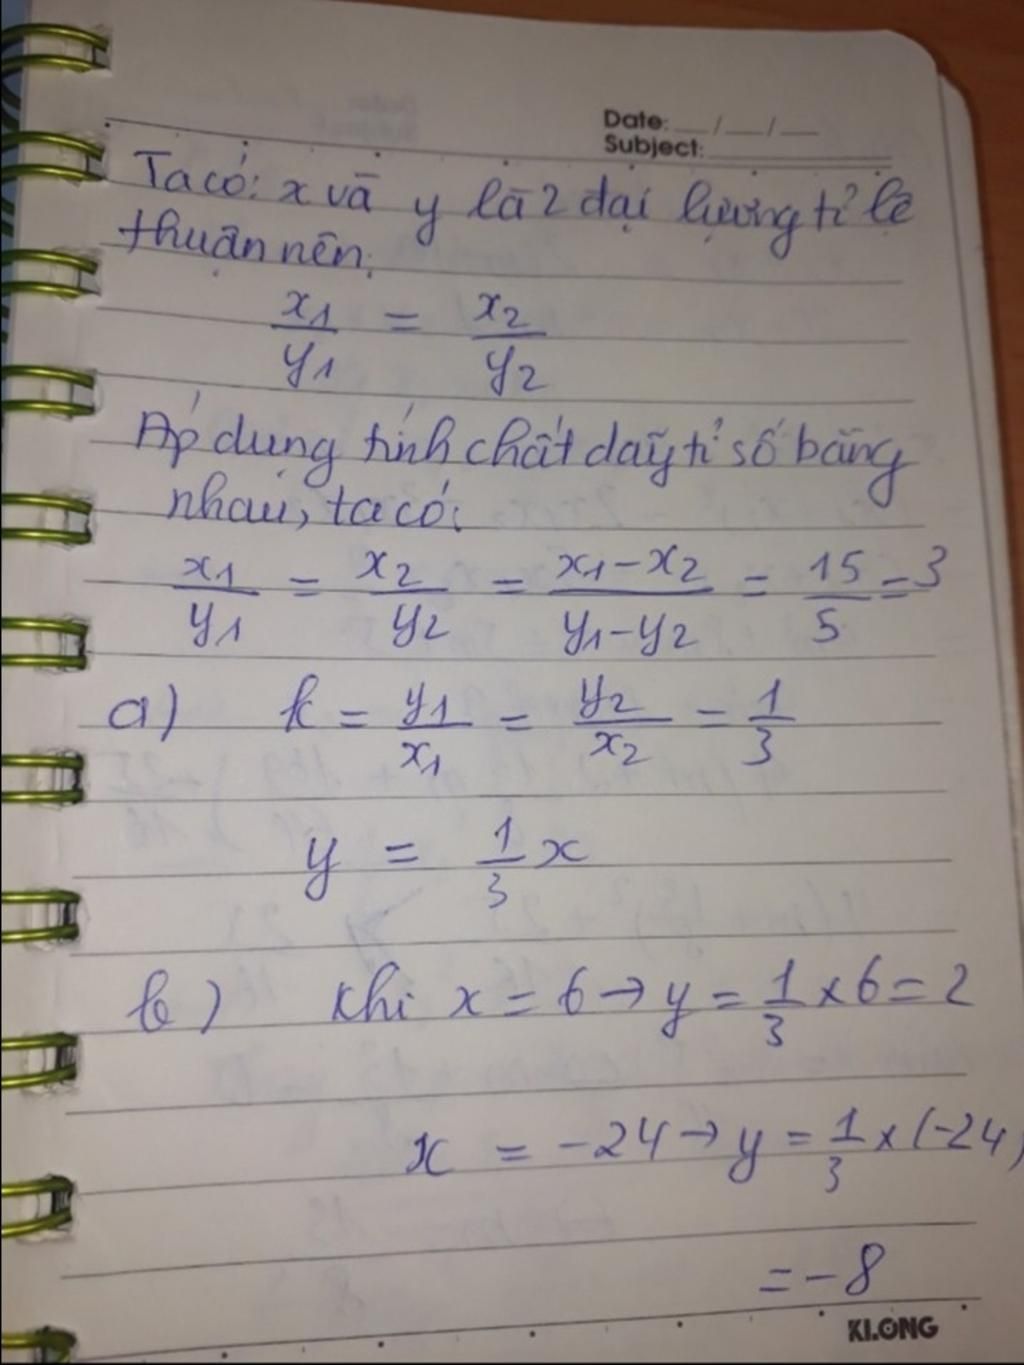 Date: __/__/__
Subject:
Ta có: x và y là 2 đại lượng tỉ lệ
thuận nên:
x1/y1 = x2/y2
Áp dụng tính chất dãy tỉ số bằng
nhau, ta có:
x1/y1 = x2/y2 = x1-x2/y1-y2 = 15/5 = 3
a) k = y1/x1 = y2/x2 = 1/3
y = 1/3 x
b) Khi x = 6 → y = 1/3 × 6 = 2
x = -24 → y = 1/3 × (-24)
= -8
KLONG